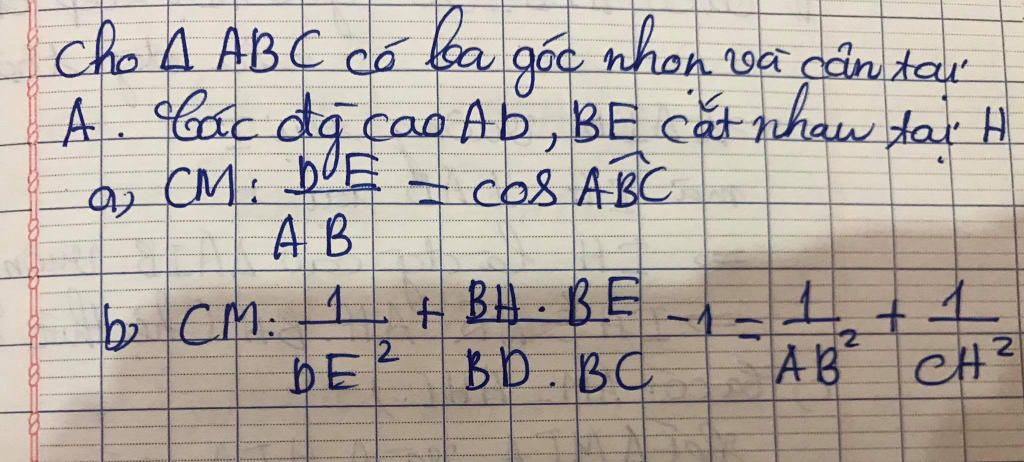 Cho Δ ABC có ba góc nhọn và cân tại
A. Các đg cao AD, BE cắt nhau tại H
a, CM: DE/AB = cos ABC^
b, CM: 1/DE² + BH.BE/BD.BC - 1 = 1/AB² + 1/CH²